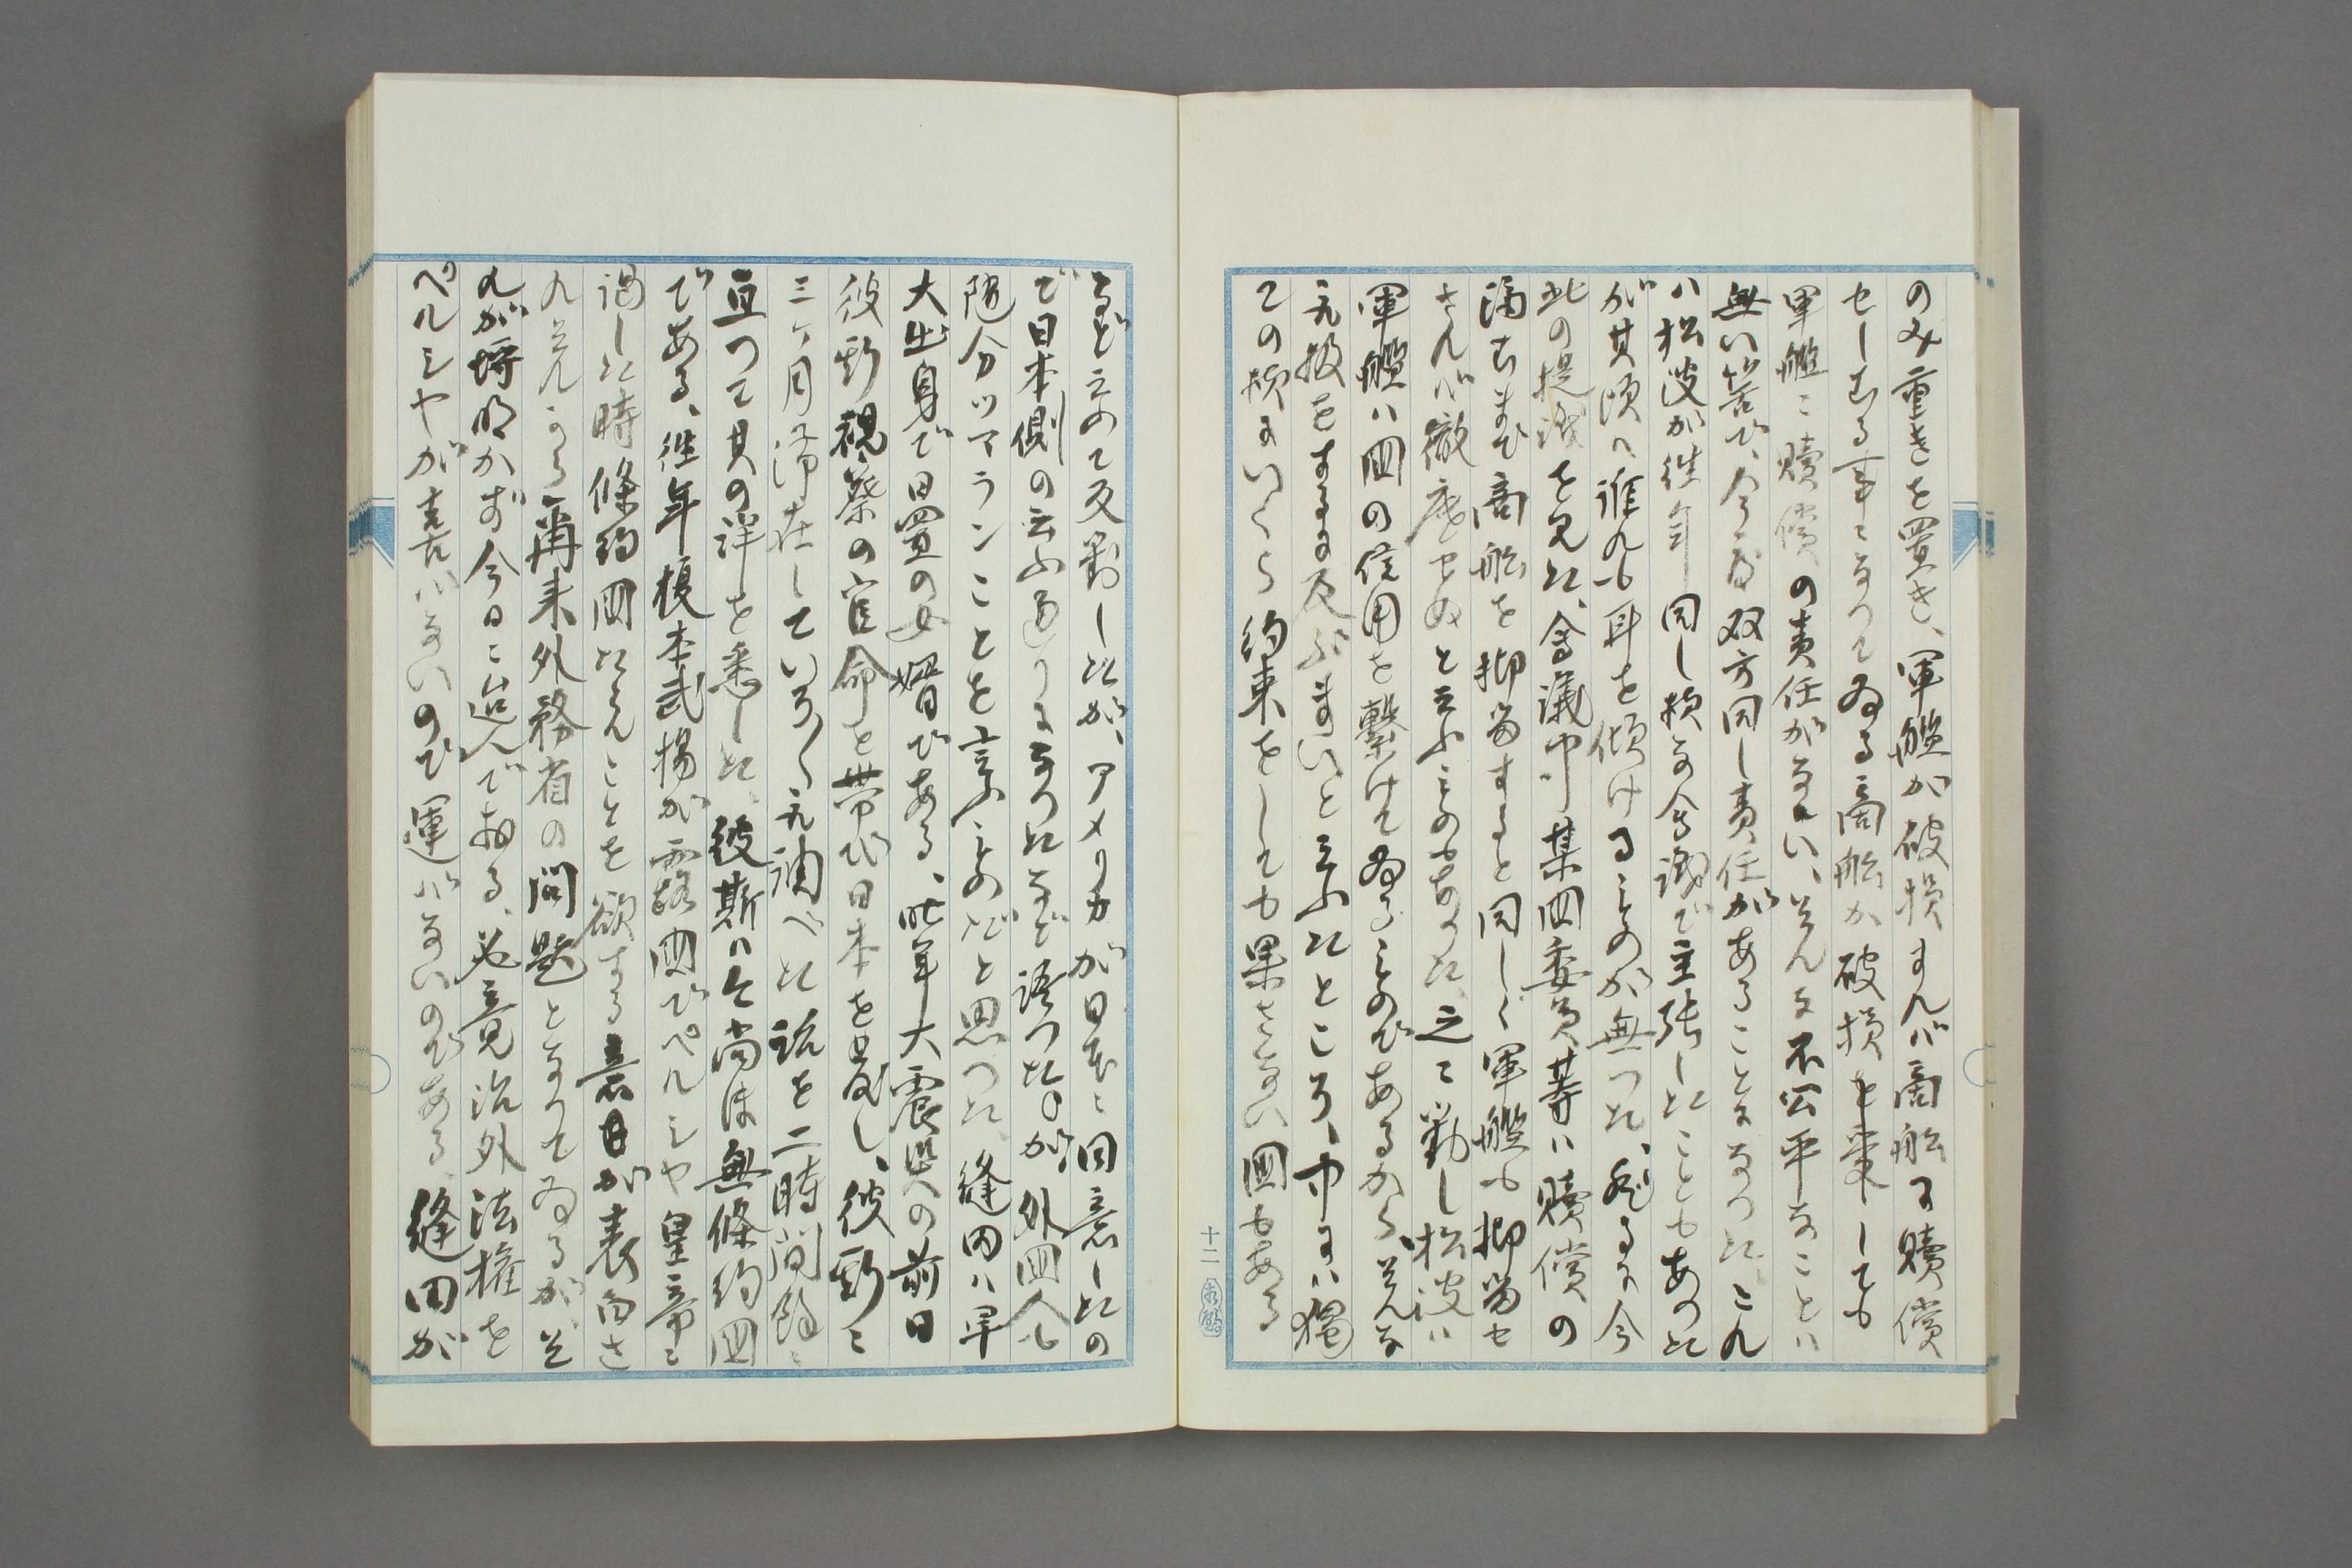 のみ重きを置き、軍艦が破損すれば商船に賠償
せしむる事になつてゐる商船が破損を来しても
軍艦に賠償の責任がない、そんな不公平なことは
無い筈で、今度双方同し責任があることになつた、これ
ハ松波が往年同し様な会議で主張したこともあつた
が其頃ハ誰れも耳を傾けるものが無つた、然るに今
此の提議を見た、会議中某国委員等ハ賠償の
済むまで商船を抑留すると同しく軍艦も抑留せ
ざれば徹底せぬと云ふものもあつた、之に対し松波ハ
軍艦ハ国の信用を繋けてゐるものであるから、そんな
取扱をするに及ぶまいと云ふたところ、中にハ独
乙の様にいくら約束をしても果さない国もある
十二
など云つて反対したが、アメリカが日本に同意したの
で日本側の云ふ通りになつたなど語つたが、外国人も
随分ツマランことを言ふものだと思つた、縫田ハ早
大出身で日置の女婿である、昨年大震災の前日
彼斯視察の官命を帯び日本を発し、彼斯に
三ケ月滞在していろ〳〵取調べた話を二時間餘に
亘つて其の詳を悉した、彼斯ハ今尚ほ無條約国
である、往年榎本武揚が露国でペルシヤ皇帝に
謁した時條約国たらんことを欲する意目が表白さ
れそれから再来外務省の問題となつてゐるが、そ
れが埒明かず今日に迨んでおる、必竟見治外法権を
ペルシヤが喜ハないので運ばないのである、縫田が